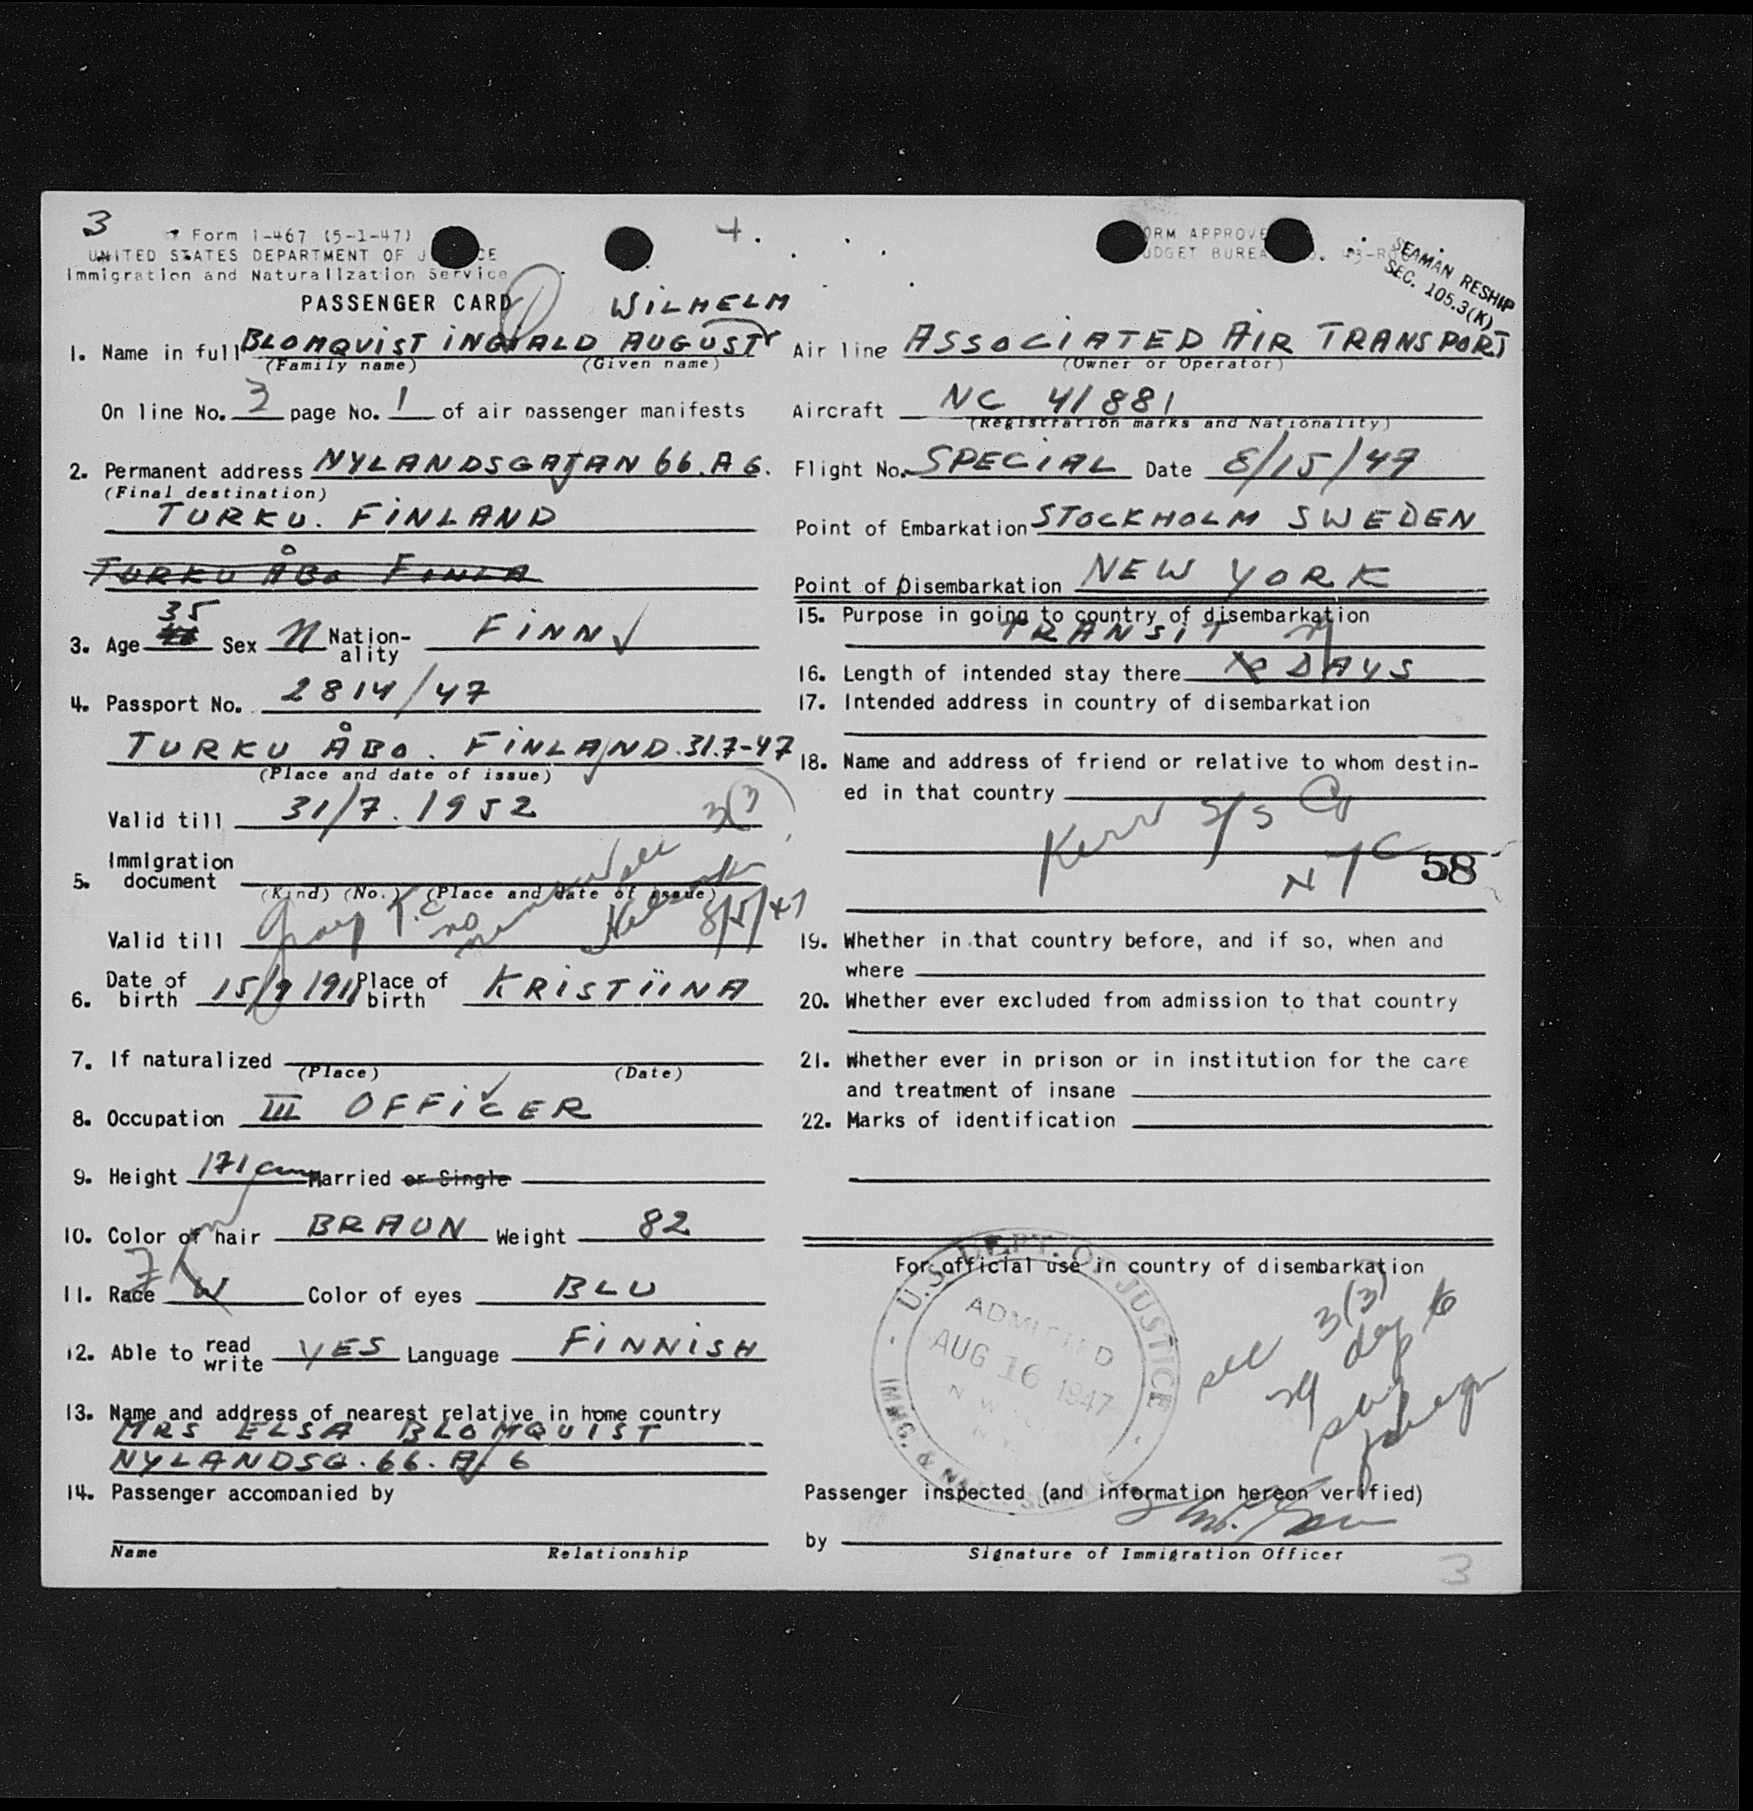 3
Form I-467 (5-1-47)
UNITED STATES DEPARTMENT OF J CE
Immigration and Naturalization Service
PASSENGER CARD
4.
ORM APPROVE
UDGET BUREA
SEAMAN RESHIP
SEC. 105.3(K)
WILHELM
1. Name in full BLOMQVIST INGVALD AUGUST
(Family name) (Given name)
On line No. 3 page No. 1 of air passenger manifests
2. Permanent address NYLANDSGATAN 66. A 6.
(Final destination)
TURKU. FINLAND
TURKU ÅBO FINLA
3. Age 35 Sex M Nation-ality FINN
4. Passport No. 2814/47
TURKU ÅBO. FINLAND. 31.7-47
(Place and date of issue)
Valid till 31/7. 1952
3(3)
5. Immigration document
(Kind) (No.) (Place and date of issue)
Valid till
8/5/47
6. Date of birth 15/9 1911 Place of birth KRISTIINA
7. If naturalized
(Place) (Date)
8. Occupation III OFFICER
9. Height 171 cm Married or Single
10. Color of hair BRAUN Weight 82
11. Race W Color of eyes BLU
12. Able to read write YES Language FINNISH
13. Name and address of nearest relative in home country
MRS ELSA BLOMQUIST
NYLANDSG. 66. A. 6
14. Passenger accompanied by
Name Relationship
Air line ASSOCIATED AIR TRANSPORT
(Owner or Operator)
Aircraft NC 41881
(Registration marks and Nationality)
Flight No. SPECIAL Date 8/15/47
Point of Embarkation STOCKHOLM SWEDEN
Point of Disembarkation NEW YORK
15. Purpose in going to country of disembarkation
TRANSIT
16. Length of intended stay there 29 DAYS
17. Intended address in country of disembarkation
18. Name and address of friend or relative to whom destin-
ed in that country
Kerr S/S Co
N Y C
58
19. Whether in that country before, and if so, when and
where
20. Whether ever excluded from admission to that country
21. Whether ever in prison or in institution for the care
and treatment of insane
22. Marks of identification
For official use in country of disembarkation
U.S. DEPT. OF JUSTICE
ADMITTED
AUG 16 1947
N. Y.
IMMG. & NAT. SERVICE
see 3(3)
29 days to
ship foreign
Passenger inspected (and information hereon verified)
by
Signature of Immigration Officer
3